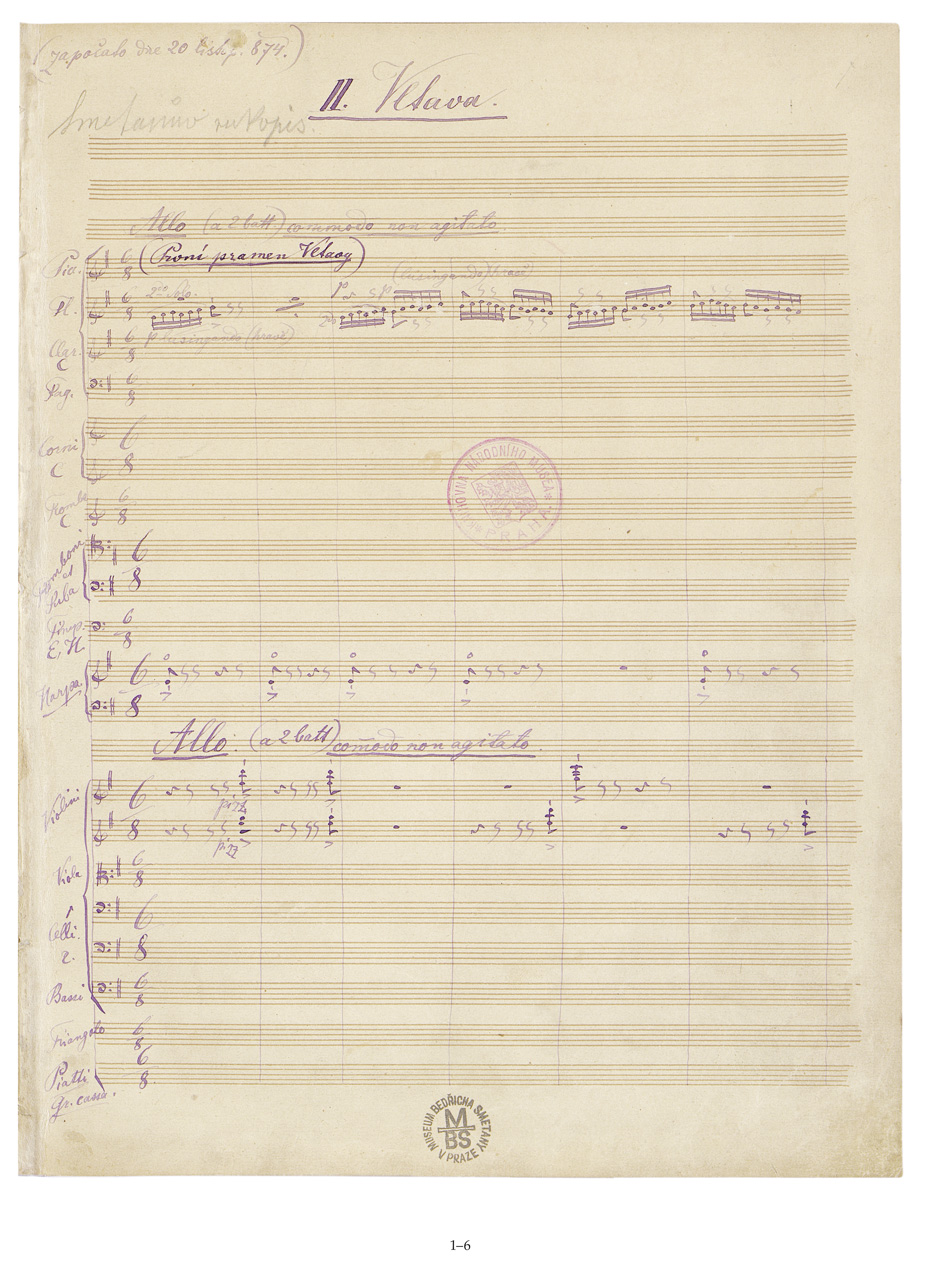 (započato dne 20 listop. 874.)
II. Vltava.
Smetanův rukopis.
Allo (a 2 batt) commodo non agitato
(První pramen Vltavy)
Pic.
(lusingando)
Fl.
2do solo.
p
p lusingando
Clar.
C
Fag.
Corni
C
KNIHOVNA NÁRODNÍHO MUSEA * PRAHA *
C
Tromboni
ed
Tuba
Timp.
E, H
Harpa.
Allo. (a 2 batt) comodo non agitato.
Violini
pizz
pizz
Viola
1
Celli.
2.
Bassi
Triangolo
Piatti
Gr. cassa.
MUSEUM BEDŘICHA SMETANY
M
BS
V PRAZE
1–6